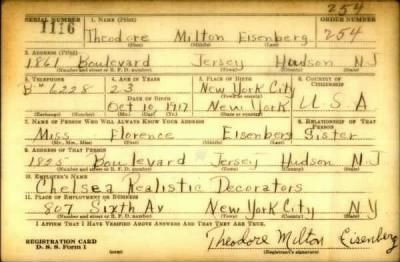 254
SERIAL NUMBER 1. NAME (Print) ORDER NUMBER
1116 Theodore Milton Eisenberg 254
(First) (Middle) (Last)
2. ADDRESS (Print)
1861 Boulevard Jersey Hudson N.J
(Number and street or R. F. D. number) (Town) (County) (State)
3. TELEPHONE 4. AGE IN YEARS 5. PLACE OF BIRTH 6. COUNTRY OF CITIZENSHIP
6228 23 New York City
DATE OF BIRTH
Oct 10, 1917 New York U.S.A
(Exchange) (Number) (Mo.) (Day) (Yr.) (State or country)
7. NAME OF PERSON WHO WILL ALWAYS KNOW YOUR ADDRESS 8. RELATIONSHIP OF THAT PERSON
Miss Florence Eisenberg Sister
(Mr., Mrs., Miss) (First) (Middle) (Last)
9. ADDRESS OF THAT PERSON
1825 Boulevard Jersey Hudson N.J
(Number and street or R. F. D. number) (Town) (County) (State)
10. EMPLOYER'S NAME
Chelsea Realistic Decorators
11. PLACE OF EMPLOYMENT OR BUSINESS
807 Sixth Av New York City NY
(Number and street or R. F. D. number) (Town) (County) (State)
I AFFIRM THAT I HAVE VERIFIED ABOVE ANSWERS AND THAT THEY ARE TRUE.
REGISTRATION CARD
D. S. S. Form 1 (over) Theodore Milton Eisenberg